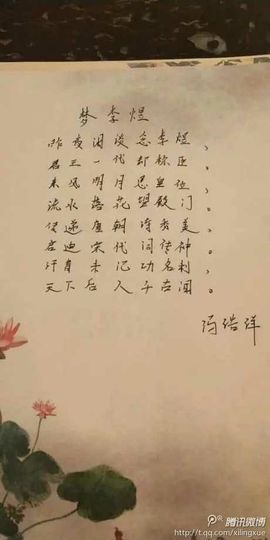 梦李煜
昨夜闲谈念李煜，
君王一代却称臣。
东风明月思皇位，
流水落花望殿门。
便递唐朝诗秀美，
启迪宋代词传神。
仟身未记功名利，
天下后人千古闻。
冯浩洋
腾讯微博
http://t.qq.com/xilingxue